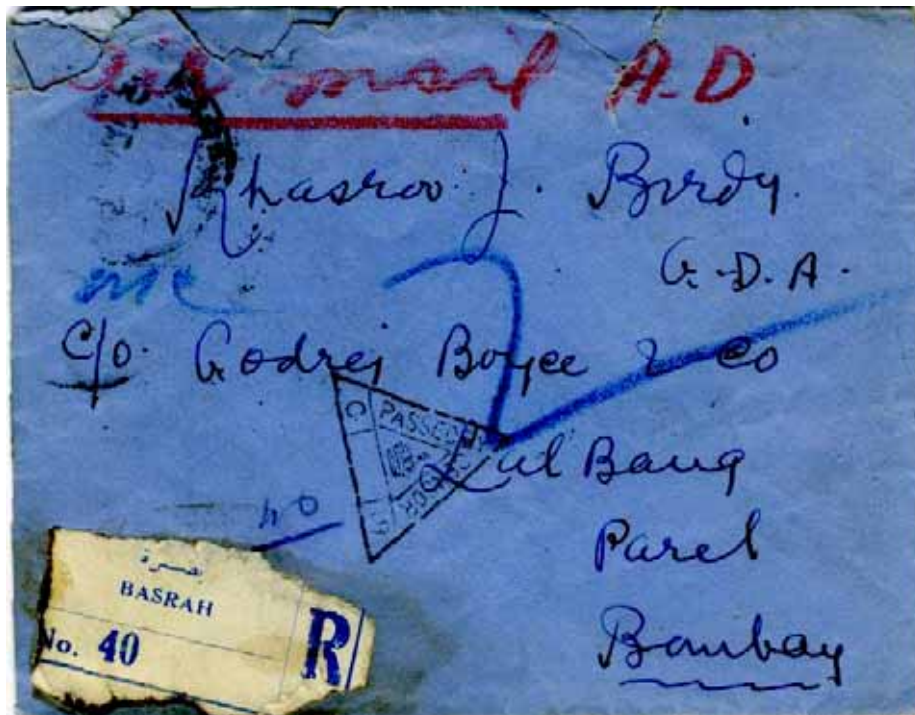 Air mail A.D
Khasroo J. Birdy.
G.D.A.
C/o. Godrej Boyce & Co
PASSED
Lal Baug
40
Parel
Bombay
بصرة
BASRAH
No. 40 R